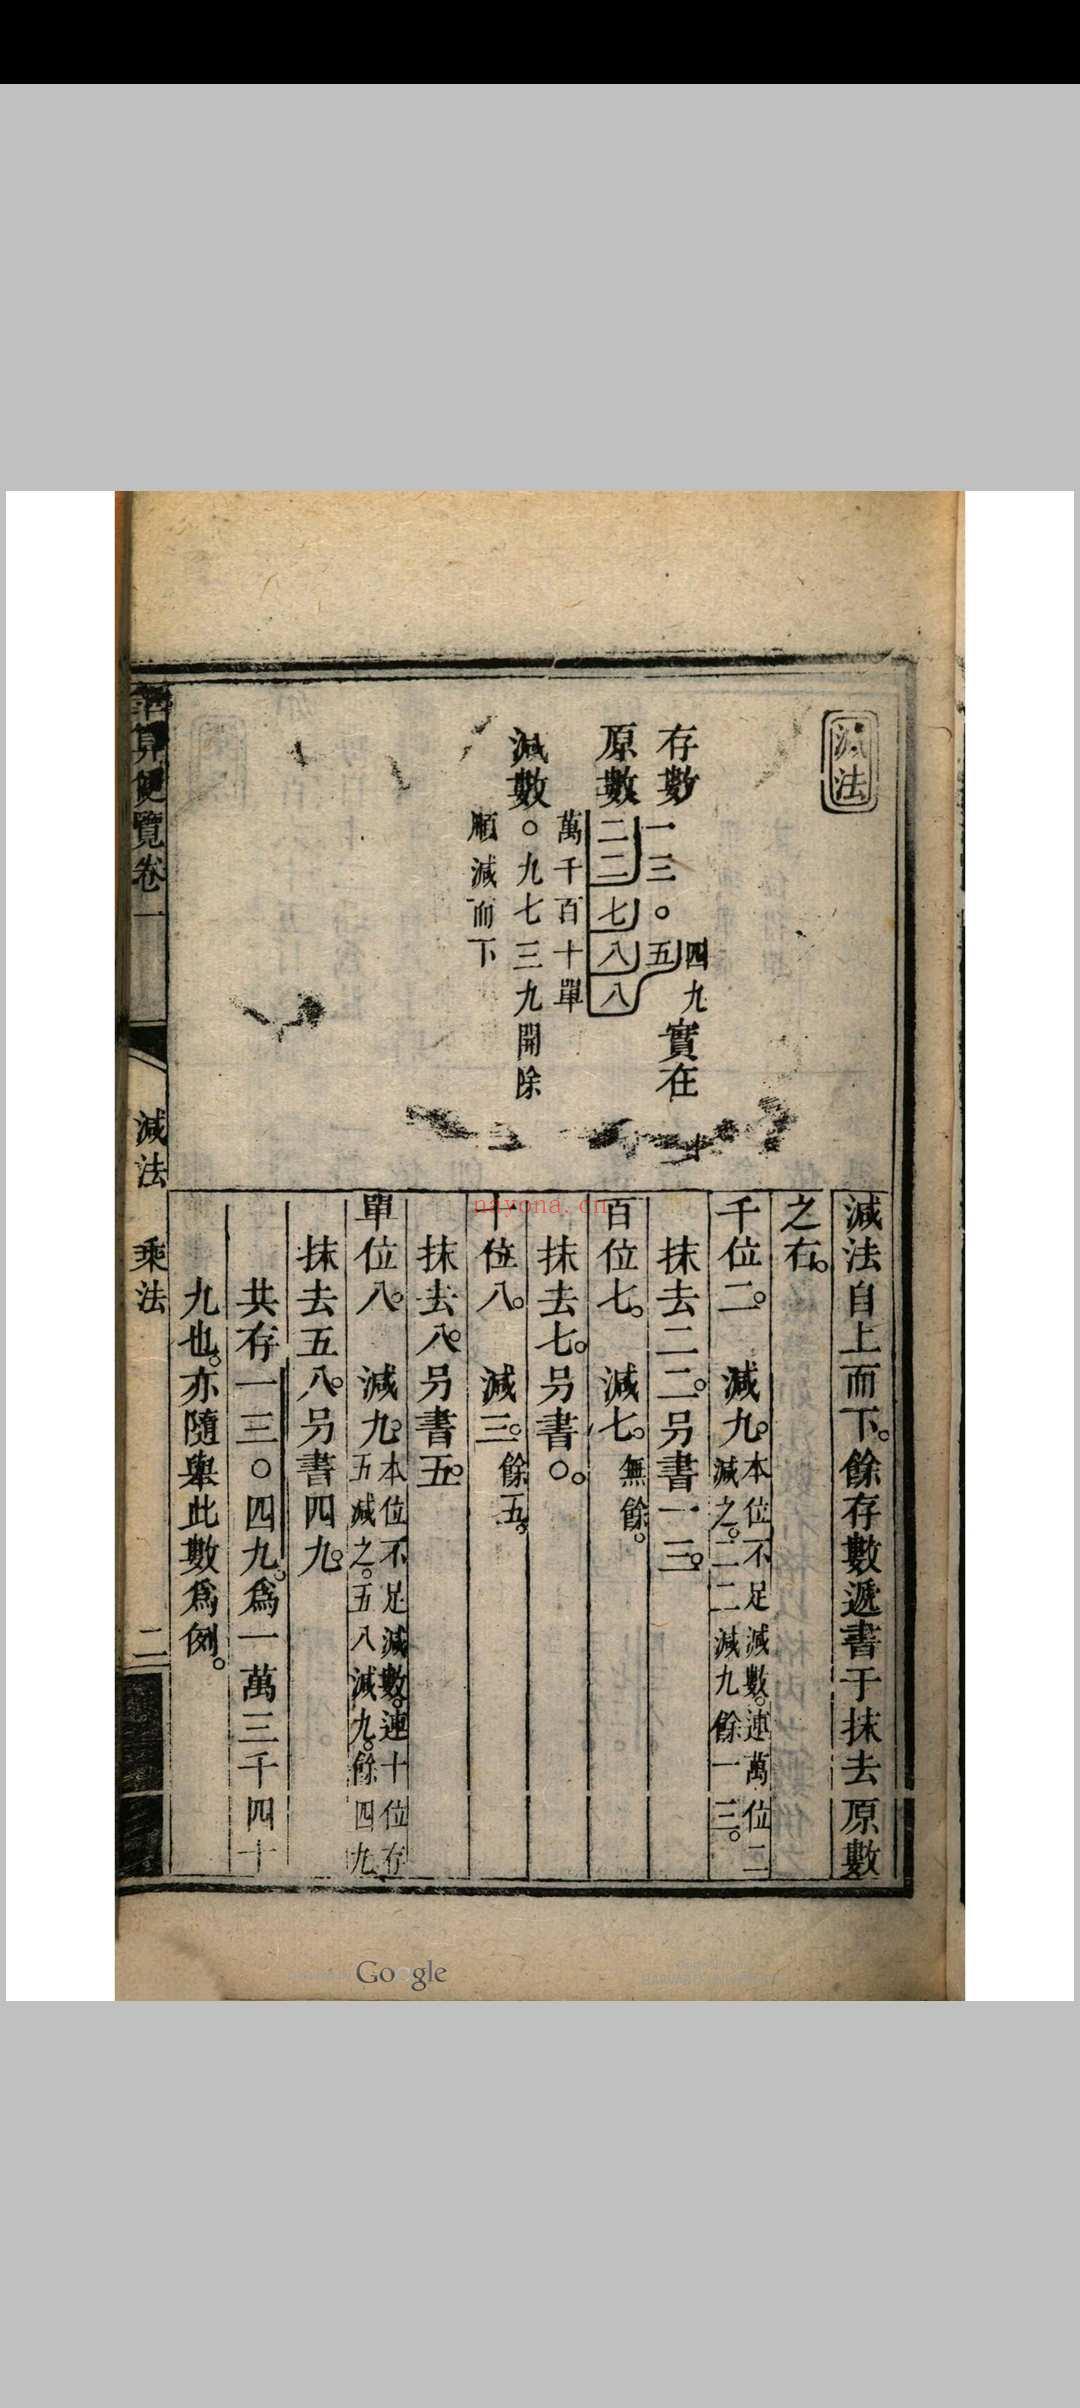 減法
存數 一三。五四九實在
原數 二二七八八
萬千百十單
減數 。九七三九開除
順減而下
減法自上而下。餘存數遞書于抹去原數
之右。
千位二。 減九。本位不足減數。連萬位二
減之。二二減九餘一三。
抹去二二。另書一三。
百位七。 減七。無餘。
抹去七。另書○。
十位八。 減三。餘五。
抹去八。另書五。
單位八。 減九。本位不足減數。連十位存
五減之。五八減九。餘四九
抹去五八。另書四九。
共存一三○四九。為一萬三千四十
九也。亦隨舉此數為例。
算便覽卷一
減法 乘法
二
nayona.cn
Google